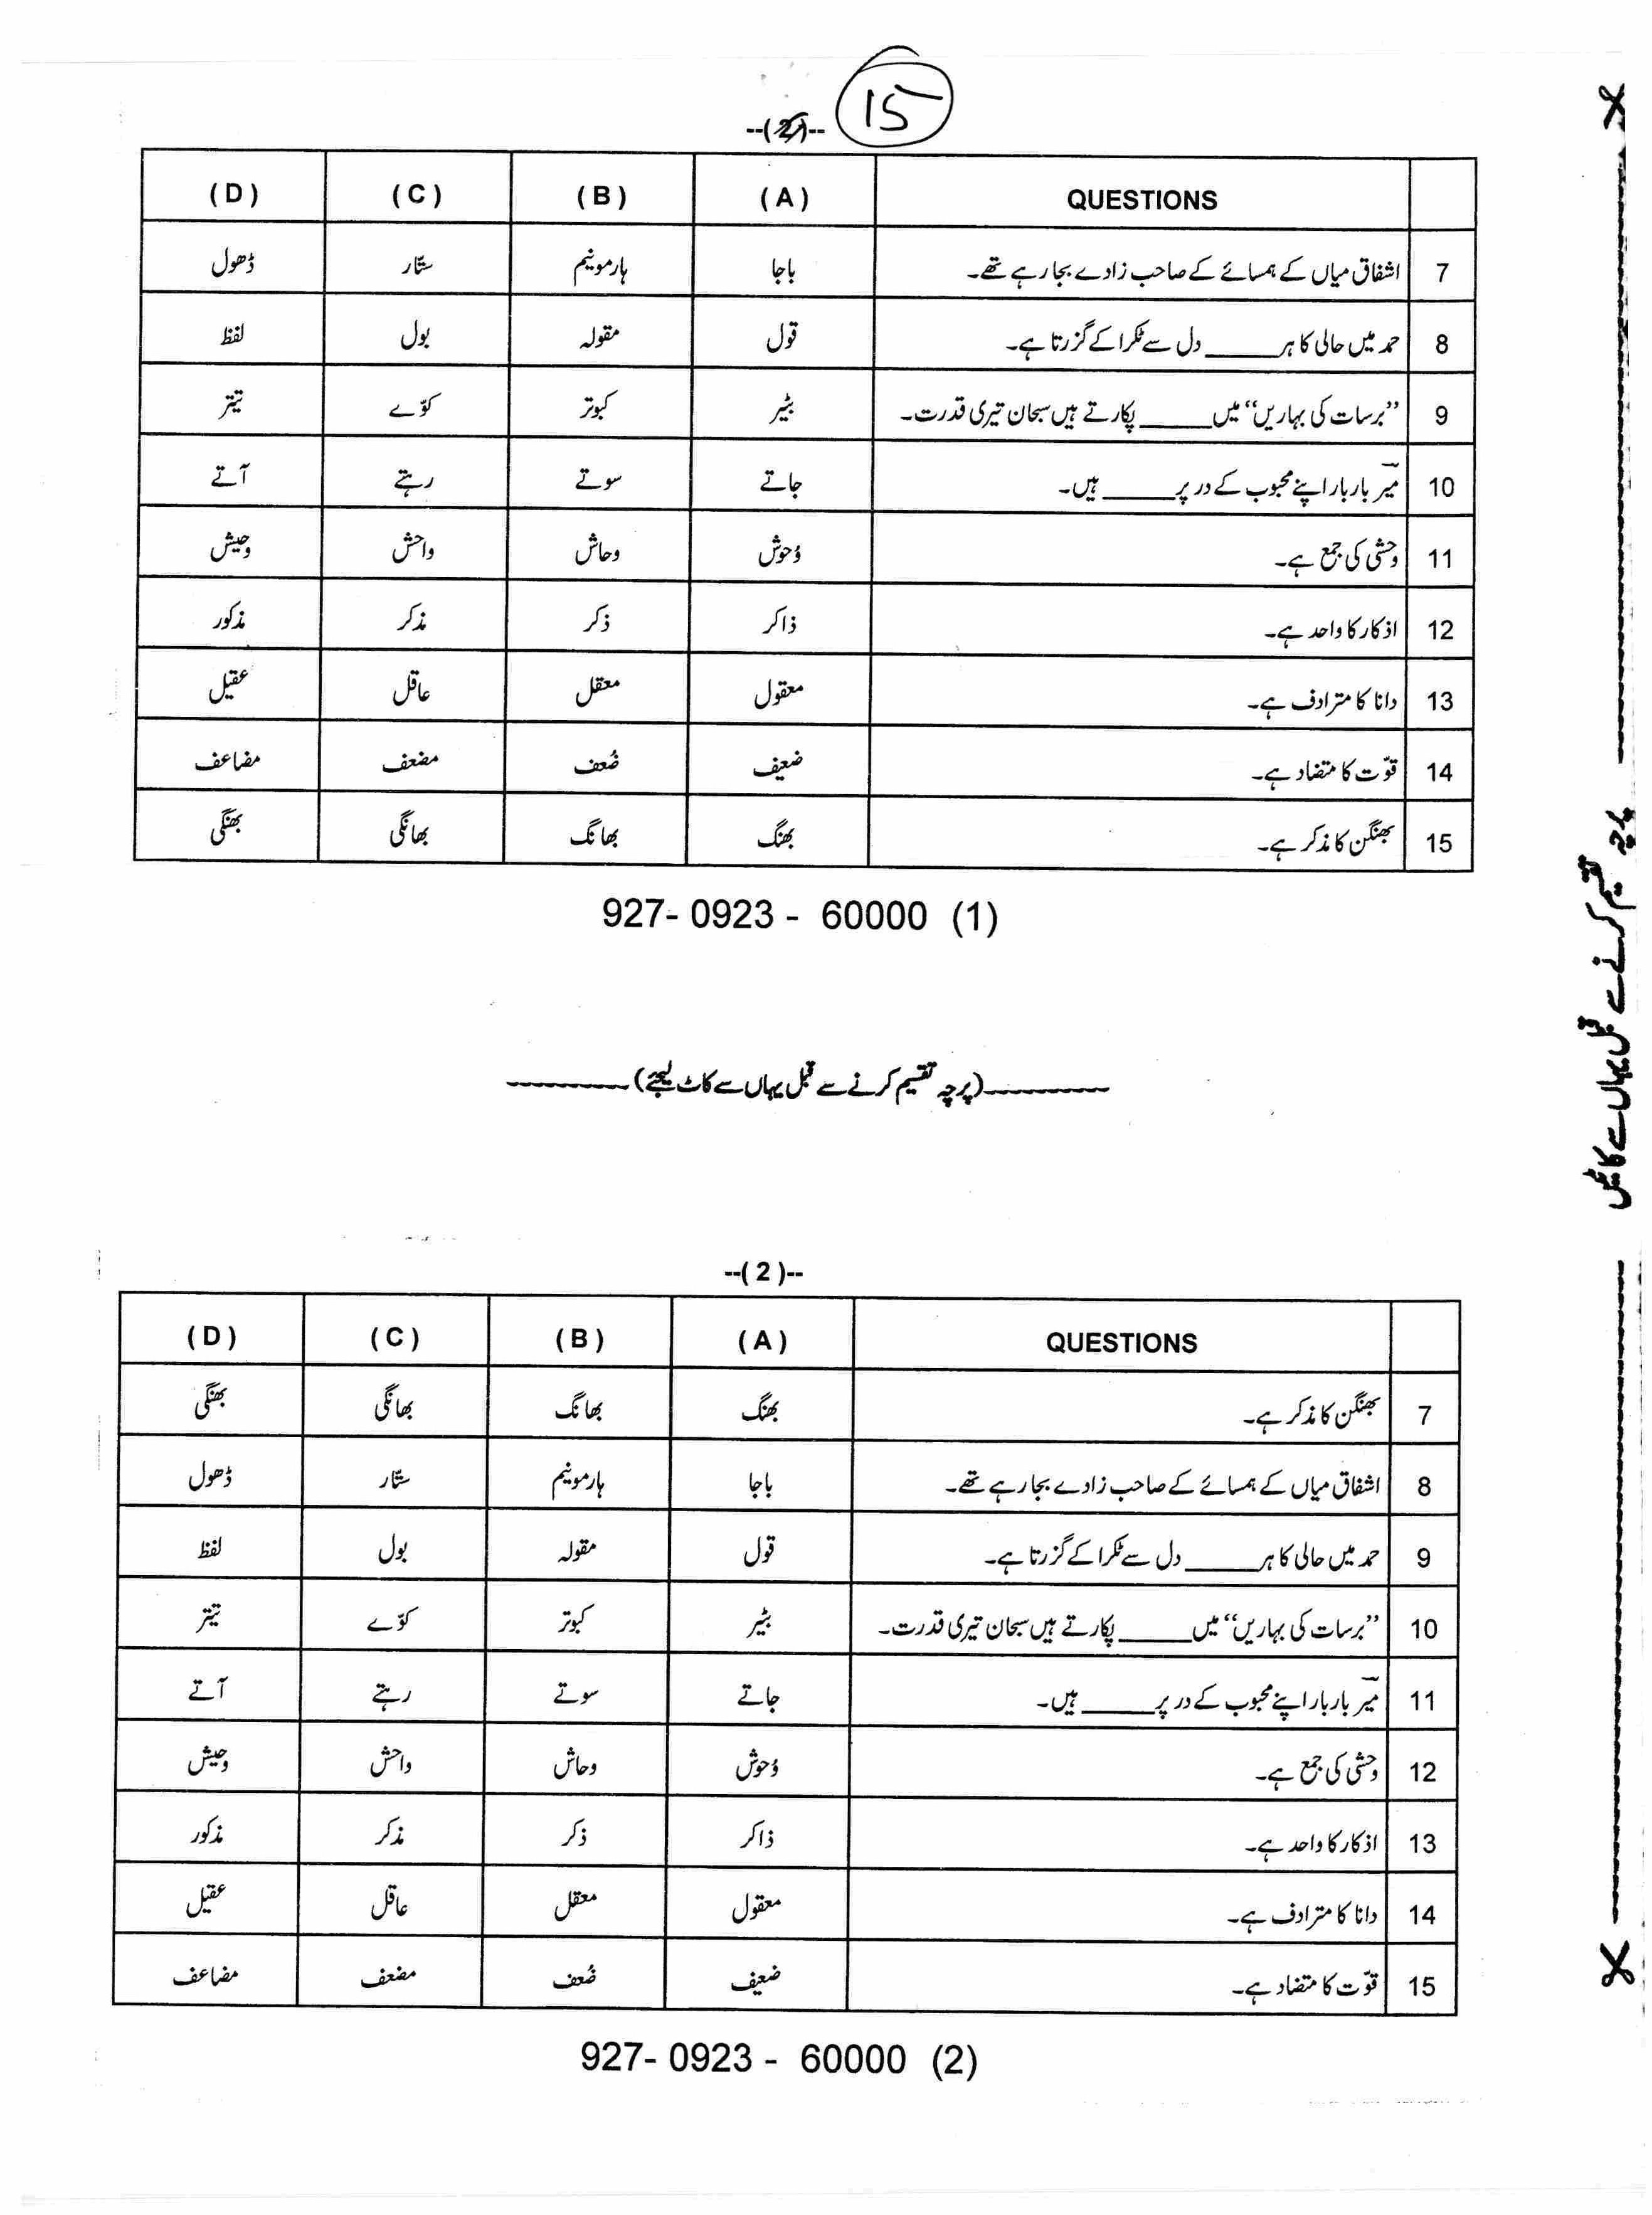 15
--(2)--
QUESTIONS (A) (B) (C) (D)
7 اشفاق میاں کے ہمسائے کے صاحب زادے بجا رہے تھے۔ باجا ہارمونیم ستّار ڈھول
8 حمد میں حالی کا ہر ______ دل سے ٹکرا کے گزرتا ہے۔ قول مقولہ بول لفظ
9 ”برسات کی بہاریں“ میں ______ پکارتے ہیں سبحان تیری قدرت۔ بٹیر کبوتر کوّے تیتر
10 میرؔ بار بار اپنے محبوب کے در پر ______ ہیں۔ جاتے سوتے رہتے آتے
11 وحشی کی جمع ہے۔ وُحوش وحاش واحش وحیش
12 اذکار کا واحد ہے۔ ذاکر ذکر مذکر مذکور
13 دانا کا مترادف ہے۔ معقول معقل عاقل عقیل
14 قوّت کا متضاد ہے۔ ضعیف ضُعف مضعف مضاعف
15 بھنگن کا مذکر ہے۔ بھنگ بھانگ بھانگی بھنگی
927- 0923 - 60000 (1)
(پرچہ تقسیم کرنے سے قبل یہاں سے کاٹ لیجئے)
--( 2 )--
QUESTIONS (A) (B) (C) (D)
7 بھنگن کا مذکر ہے۔ بھنگ بھانگ بھانگی بھنگی
8 اشفاق میاں کے ہمسائے کے صاحب زادے بجا رہے تھے۔ باجا ہارمونیم ستّار ڈھول
9 حمد میں حالی کا ہر ______ دل سے ٹکرا کے گزرتا ہے۔ قول مقولہ بول لفظ
10 ”برسات کی بہاریں“ میں ______ پکارتے ہیں سبحان تیری قدرت۔ بٹیر کبوتر کوّے تیتر
11 میرؔ بار بار اپنے محبوب کے در پر ______ ہیں۔ جاتے سوتے رہتے آتے
12 وحشی کی جمع ہے۔ وُحوش وحاش واحش وحیش
13 اذکار کا واحد ہے۔ ذاکر ذکر مذکر مذکور
14 دانا کا مترادف ہے۔ معقول معقل عاقل عقیل
15 قوّت کا متضاد ہے۔ ضعیف ضُعف مضعف مضاعف
927- 0923 - 60000 (2)
پرچہ تقسیم کرنے سے قبل یہاں سے کاٹیں